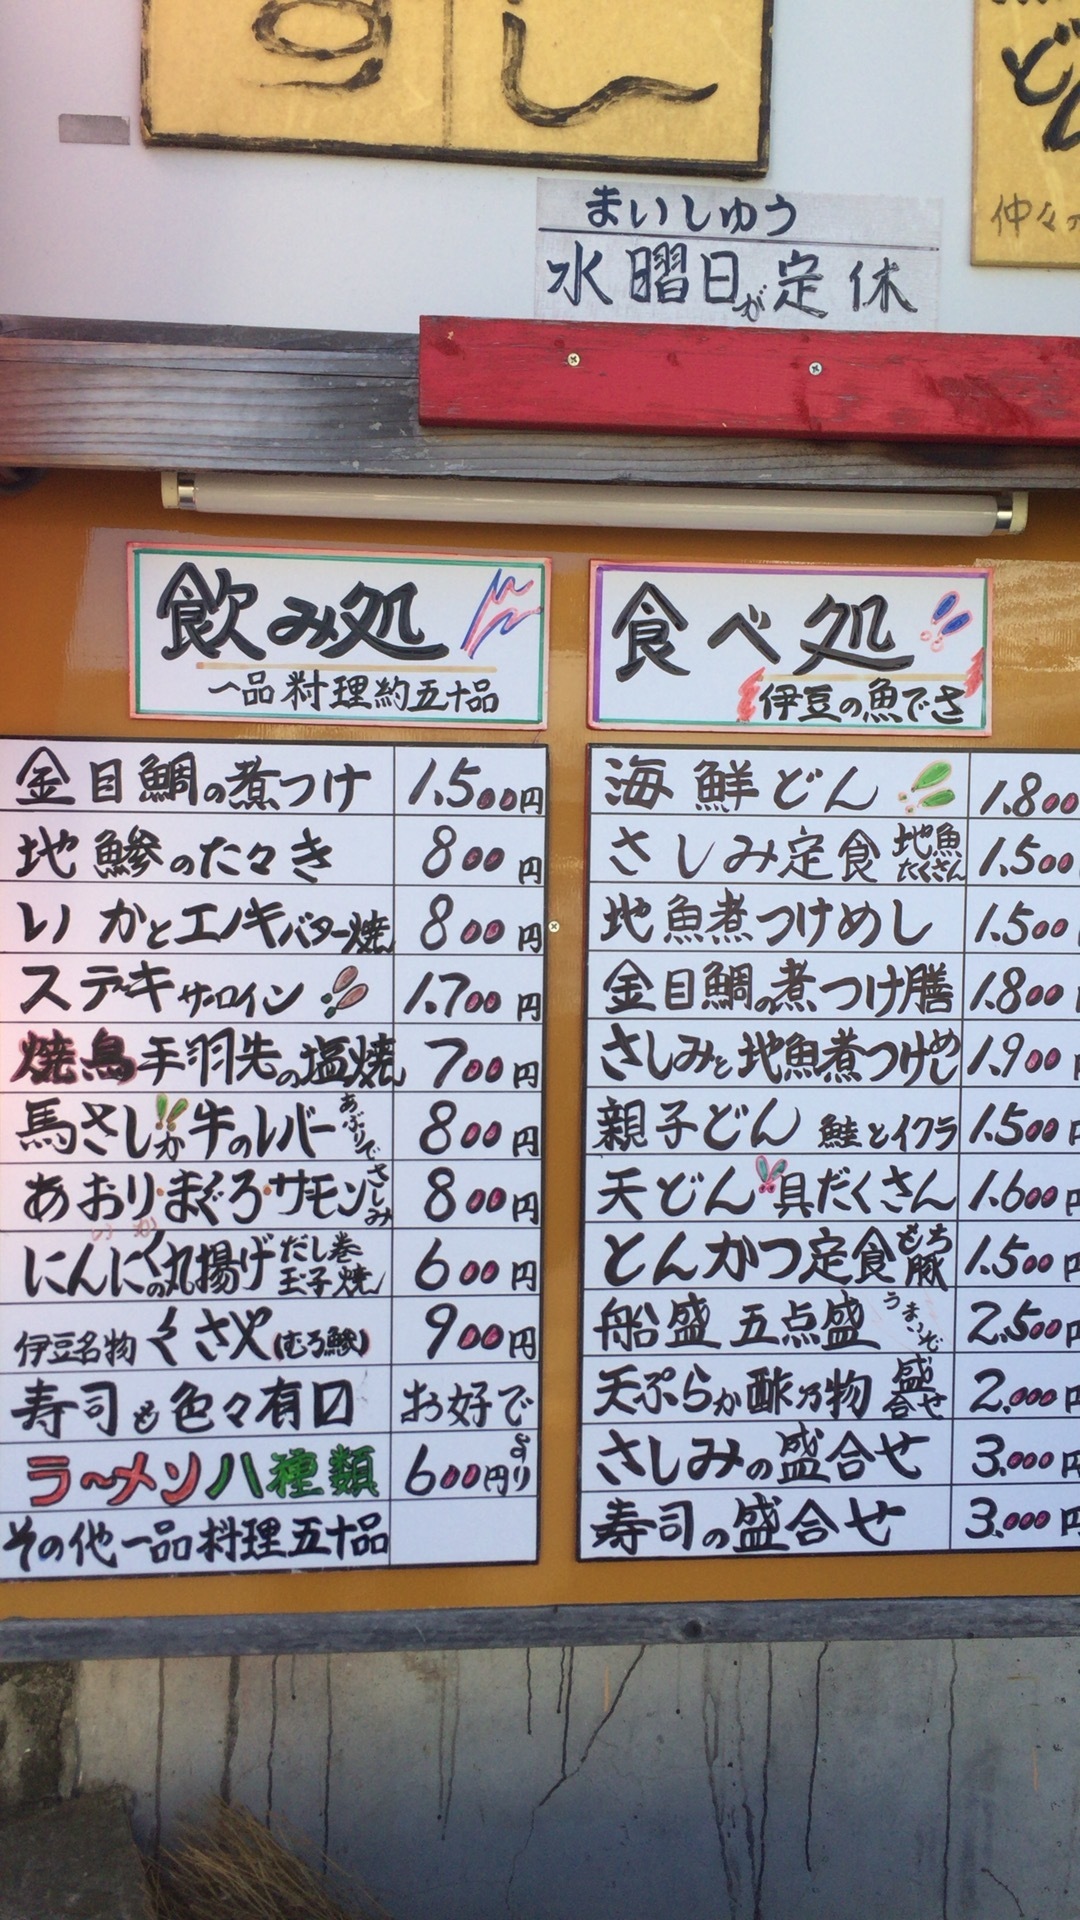 すし
ど
仲々の
まいしゅう
水曜日が定休
飲み処
一品料理約五十品
金目鯛の煮つけ 1.500円
地鯵のたゝき 800円
いかとエノキバター焼 800円
ステーキサーロイン 1.700円
焼鳥手羽先の塩焼 700円
馬さしか牛のレバーあぶりで 800円
あおりいか・まぐろ・サーモンさしみ 800円
にんにくの丸揚げ だし巻玉子焼 600円
伊豆名物くさや(むろ鯵) 900円
寿司も色々有口 お好で
ラーメン八種類 600円より
その他一品料理五十品
食べ処
伊豆の魚でさ
海鮮どん 1.800
さしみ定食 地魚たくさん 1.500
地魚煮つけめし 1.500
金目鯛の煮つけ膳 1.800
さしみと地魚煮つけめし 1.900
親子どん 鮭とイクラ 1.500円
天どん具だくさん 1.600円
とんかつ定食 もち豚 1.500円
船盛五点盛 うまいで 2.500円
天ぷらか酢乃物 盛合せ 2.000円
さしみの盛合せ 3.000円
寿司の盛合せ 3.000円